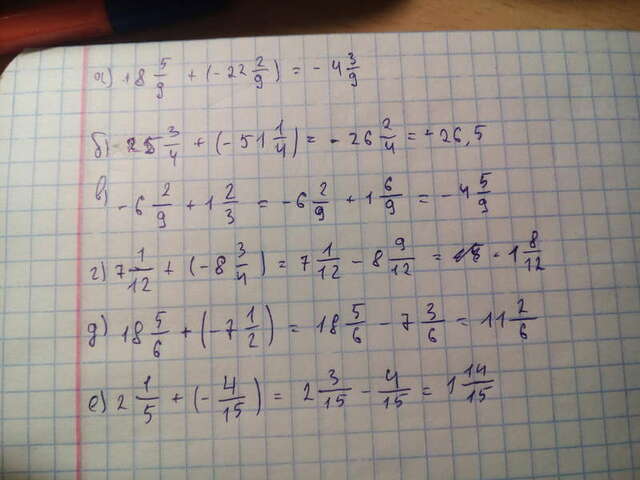 а) +8 5/9 + (-22 2/9) = -4 3/9
б) 25 3/4 + (-51 1/4) = -26 2/4 = -26,5
в) -6 2/9 + 1 2/3 = -6 2/9 + 1 6/9 = -4 5/9
г) 7 1/12 + (-8 3/4) = 7 1/12 - 8 9/12 = -1 8/12
д) 18 5/6 + (-7 1/2) = 18 5/6 - 7 3/6 = 11 2/6
е) 2 1/5 + (-4/15) = 2 3/15 - 4/15 = 1 14/15